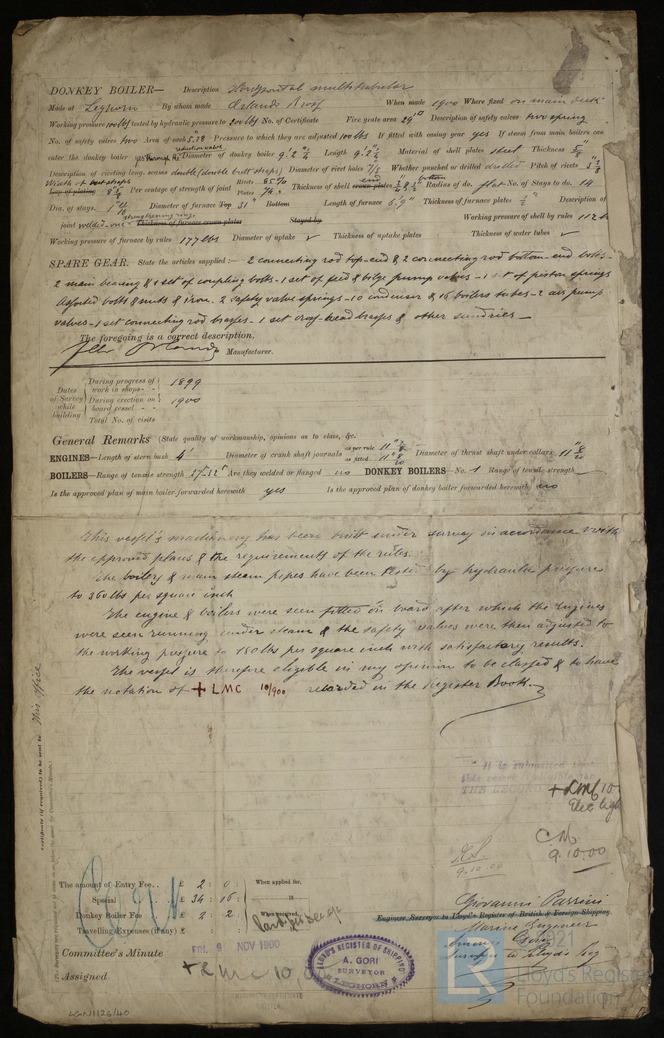 DONKEY BOILER— Description Horizontal multitubular
Made at Leghorn By whom made Orlando Bros When made 1900 Where fixed on main deck
Working pressure 100 lbs tested by hydraulic pressure to 200 lbs No. of Certificate Fire grate area 29 Description of safety valves two spring
No. of safety valves two Area of each 5.78 Pressure to which they are adjusted 100 lbs If fitted with easing gear yes If steam from main boilers can
enter the donkey boiler yes through the reduction valve Diameter of donkey boiler 9'.2 Length 9'.2 Material of shell plates steel Thickness 5/8
Description of riveting long. seams double (double butt straps) Diameter of rivet holes 7/8 Whether punched or drilled drilled Pitch of rivets
Width of butt straps Per centage of strength of joint Rivets 85% Plates 74 Thickness of shell end plates Radius of do. flat No. of Stays to do. 14
Dia. of stays. Diameter of furnace Top 31" Bottom Length of furnace 5'.9" Thickness of furnace plates 1/2" Description of
joint welded - one strengthening ring Thickness of furnace crown plates Stayed by Working pressure of shell by rules 112 lb
Working pressure of furnace by rules 177 lbs Diameter of uptake ✓ Thickness of uptake plates Thickness of water tubes ✓
SPARE GEAR. State the articles supplied:— 2 connecting rod top-end & 2 connecting rod bottom-end bolts-
2 main bearing & 1 set of coupling bolts - 1 set of feed & bilge pump valves - 1 set of piston springs
Assorted bolts & nuts & iron. 2 safety valve springs - 10 condenser & 16 boilers tubes - 2 air pump
valves - 1 set connecting rod brasses - 1 set cross-head brasses & other sundries —
The foregoing is a correct description,
Manufacturer.
Dates of Survey while building
During progress of work in shops - - 1899
During erection on board vessel - - 1900
Total No. of visits
General Remarks (State quality of workmanship, opinions as to class, &c.
ENGINES—Length of stern bush 4' Diameter of crank shaft journals as per rule 11" as fitted 11" Diameter of thrust shaft under collars 11"
BOILERS—Range of tensile strength 27-32 Are they welded or flanged no DONKEY BOILERS—No. 1 Range of tensile strength
Is the approved plan of main boiler forwarded herewith yes Is the approved plan of donkey boiler forwarded herewith no
This vessel's machinery has been built under survey in accordance with
the approved plans & the requirements of the rules.
The boilers & main steam pipes have been tested by hydraulic pressure
to 360 lbs per square inch
The engine & boilers were seen fitted on board after which the Engines
were seen running under steam & the safety valves were then adjusted to
the working pressure to 180 lbs per square inch with satisfactory results.
The vessel is therefore eligible in my opinion to be classed & to have
the notation of + LMC 10/900 recorded in the Register Book.
This office
It is submitted that
this vessel is eligible for
THE RECORD + LMC 10.00
Elec light
CM
9.10.00
9.10.00
The amount of Entry Fee . . £ 2 : 0 :
Special . . £ 34 : 16 :
Donkey Boiler Fee £ 2 : 2 :
Travelling Expenses (if any) £
When applied for,
When received,
Giovanni Parrini
Engineer Surveyor to Lloyd's Register of British & Foreign Shipping
Marine Engineer
Surveyor to Lloyds Reg
Committee's Minute
FRI. 9 NOV 1900
Assigned + LMC 10.00
LLOYD'S REGISTER OF SHIPPING
A. GORI
SURVEYOR
LEGHORN
LGN1126/40
LR
Lloyd's Register
Foundation